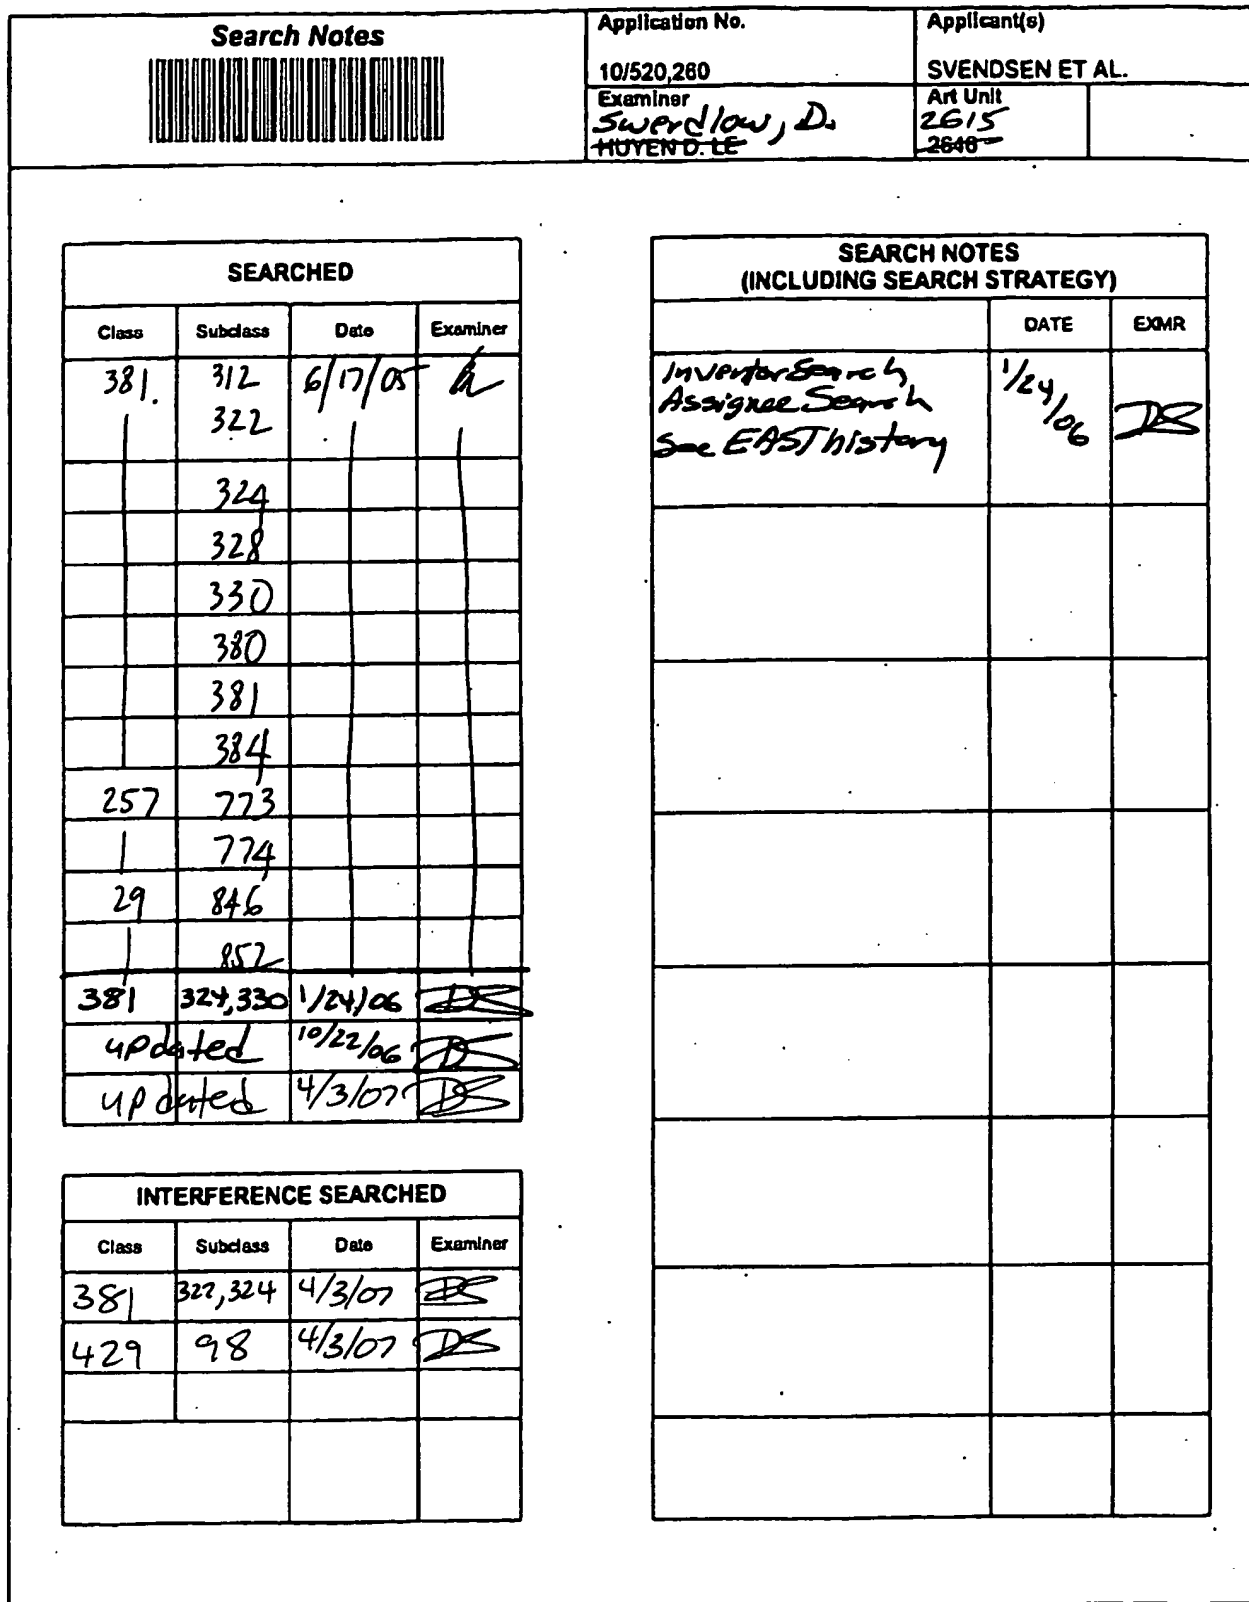 Search Notes
Application No.
Applicant(s)
10/520,260
SVENDSEN ET AL.
Examiner
Art Unit
Swerdlow, D.
2615
HUYEN D. LE
2646
SEARCHED
Class Subclass Date Examiner
381. 312 6/17/05
322
324
328
330
380
381
384
257 773
774
29 846
852
381 324,330 1/24/06 DS
updated 10/22/06 DS
updated 4/3/07 DS
INTERFERENCE SEARCHED
Class Subclass Date Examiner
381 322,324 4/3/07 DS
429 98 4/3/07 DS
SEARCH NOTES
(INCLUDING SEARCH STRATEGY)
DATE EXMR
Inventor Search 1/24/06 DS
Assignee Search
See EAST history